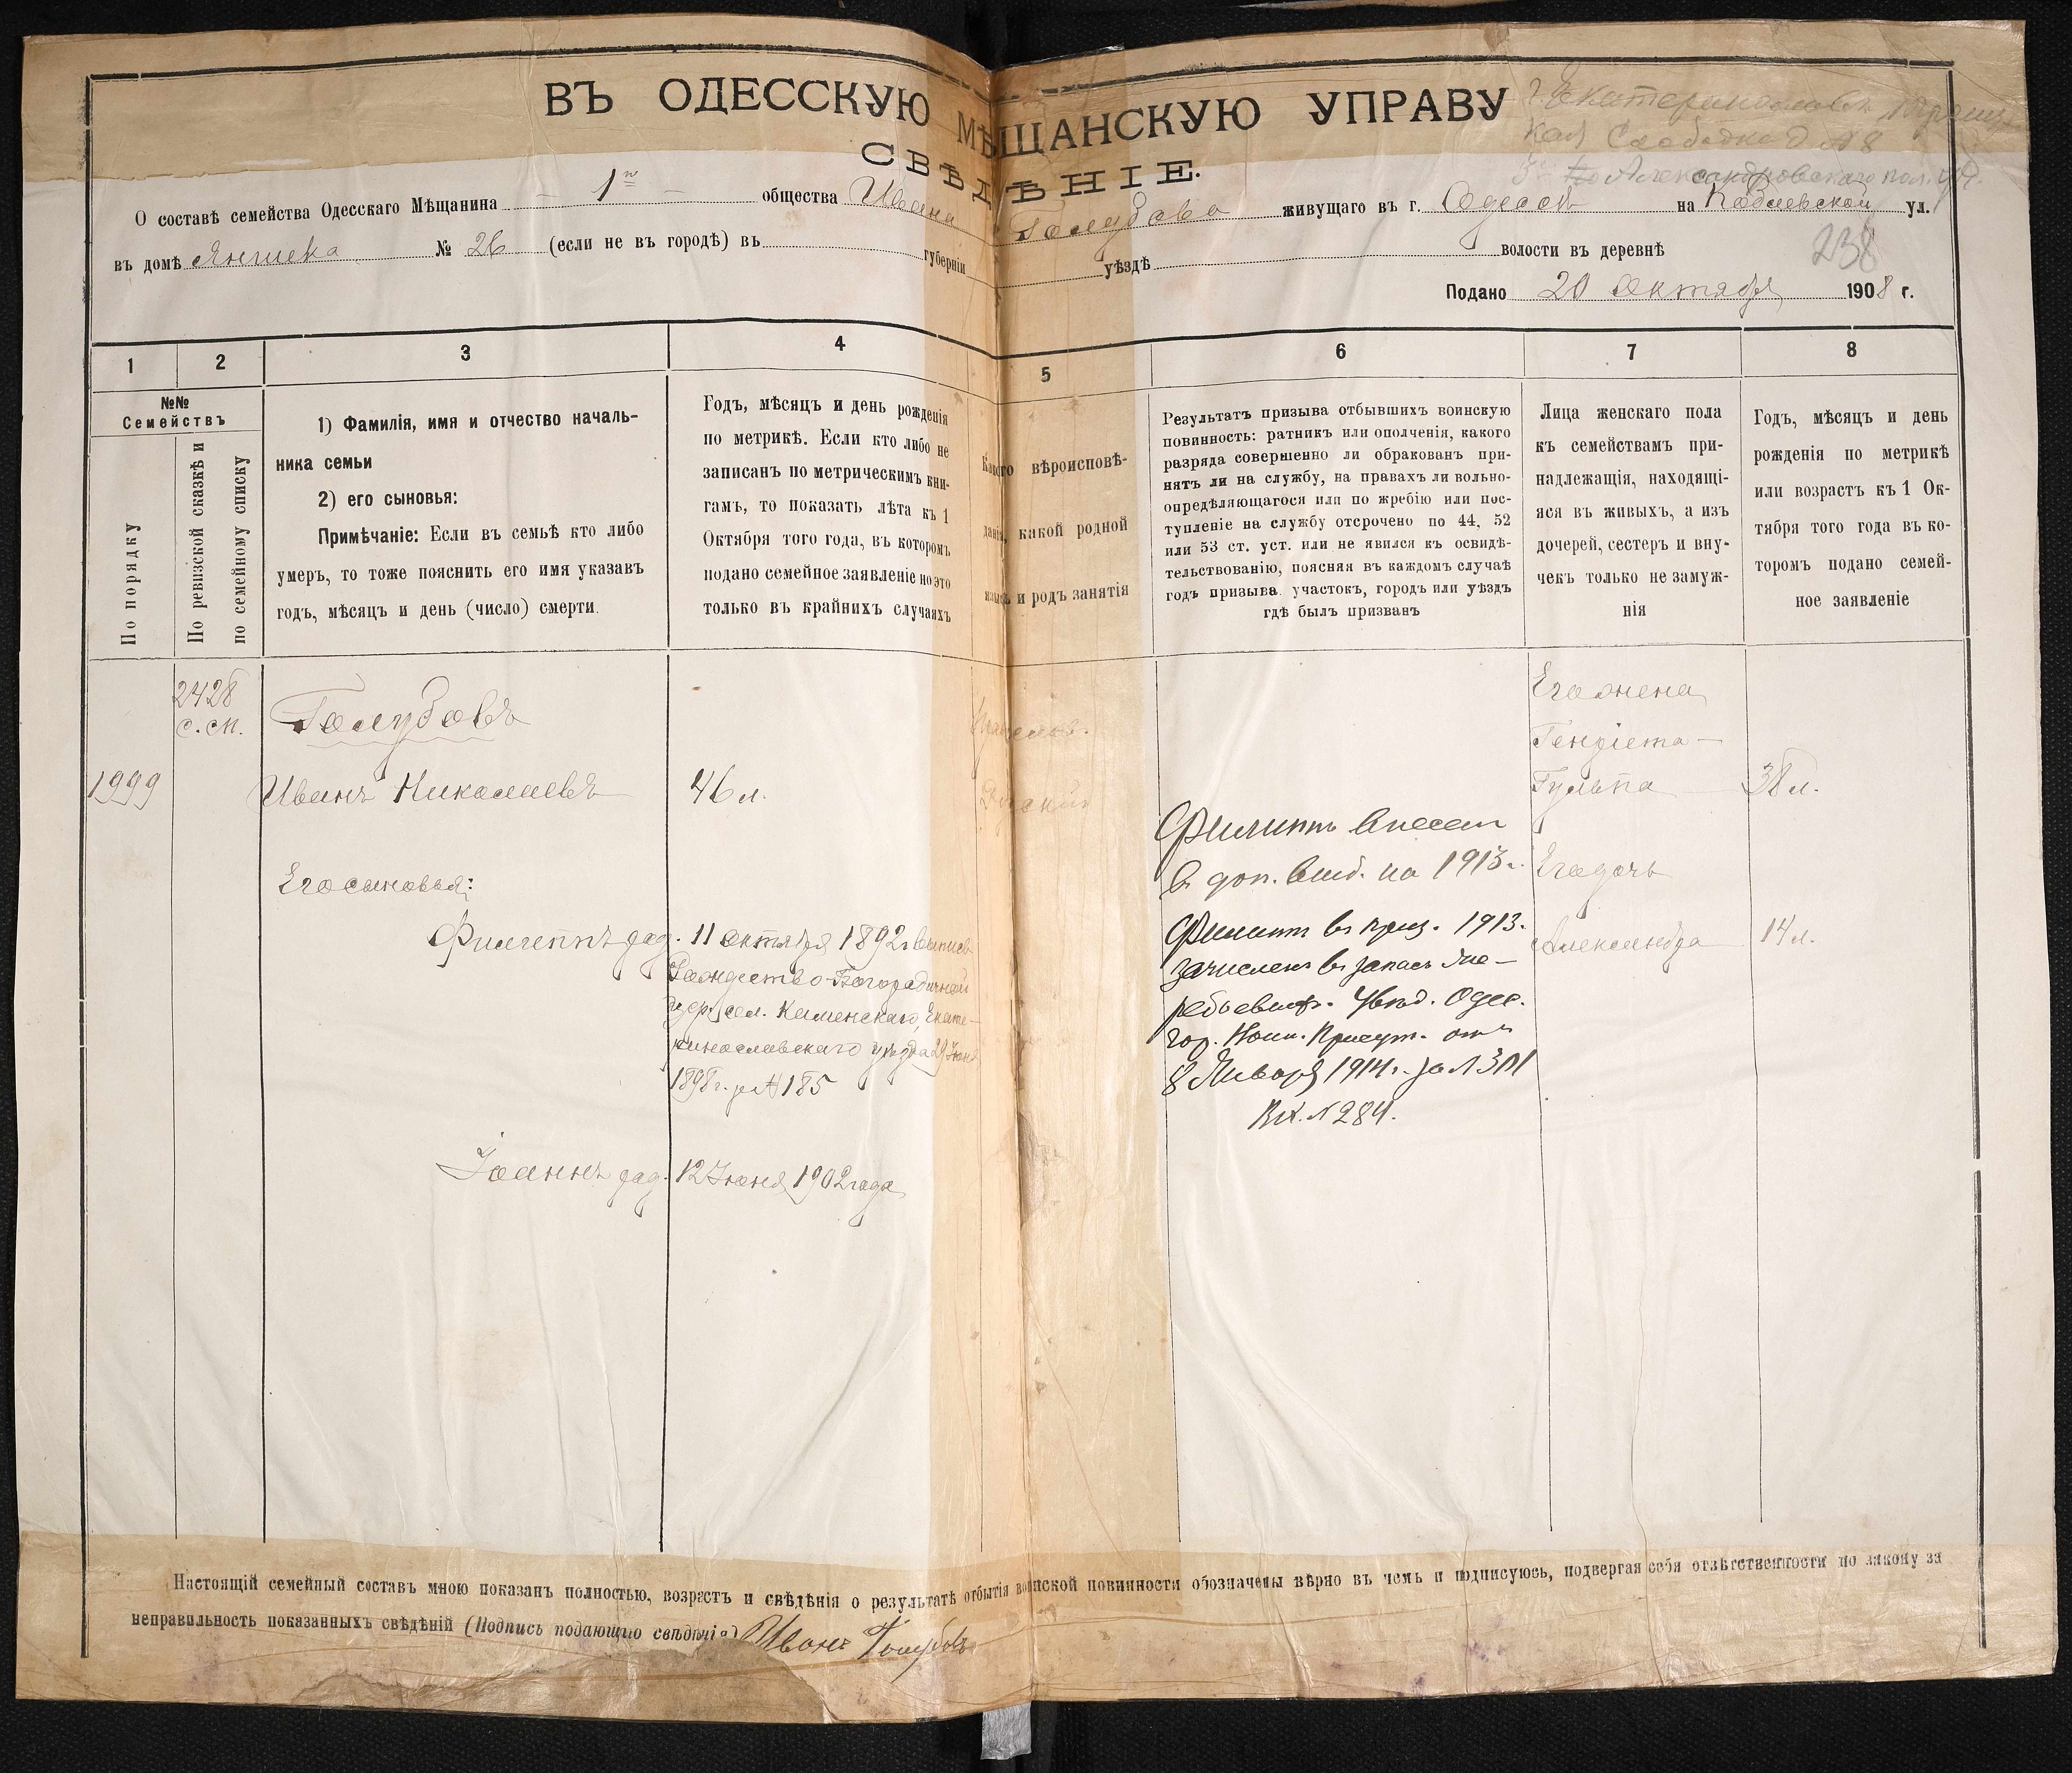 ВЪ ОДЕССКУЮ МѢЩАНСКУЮ УПРАВУ
СВѢДѢНІЕ.
г. Екатеринославъ
кая Слободка д № 8
Александровскаго пол. уч.
О составѣ семейства Одесскаго Мѣщанина 1го общества Ивана Голубова живущаго въ г. Одессѣ на Коблевской ул.
въ домѣ Янишека № 26 (если не въ городѣ) въ губерніи уѣздѣ волости въ деревнѣ
238
Подано 20 Октября 1908 г.
1 2 3 4 5 6 7 8
№№
Семействъ
По порядку
По ревизской сказкѣ и
по семейному списку
1) Фамилія, имя и отчество началь-
ника семьи
2) его сыновья:
Примѣчаніе: Если въ семьѣ кто либо
умеръ, то тоже пояснить его имя указавъ
годъ, мѣсяцъ и день (число) смерти.
Годъ, мѣсяцъ и день рожденія
по метрикѣ. Если кто либо не
записанъ по метрическимъ кни-
гамъ, то показать лѣта къ 1
Октября того года, въ которомъ
подано семейное заявленіе но это
только въ крайнихъ случаяхъ
Какого вѣроисповѣ-
данія, какой родной
языкъ и родъ занятія
Результатъ призыва отбывшихъ воинскую
повинность: ратникъ или ополченія, какого
разряда совершенно ли обракованъ при-
нятъ ли на службу, на правахъ ли вольно-
опредѣляющагося или по жребію или пос-
тупленіе на службу отсрочено по 44, 52
или 53 ст. уст. или не явился къ освидѣ-
тельствованію, поясняя въ каждомъ случаѣ
годъ призыва. участокъ, городъ или уѣздъ
гдѣ былъ призванъ
Лица женскаго пола
къ семействамъ при-
надлежащія, находящі-
яся въ живыхъ, а изъ
дочерей, сестеръ и вну-
чекъ только не замуж-
нія
Годъ, мѣсяцъ и день
рожденія по метрикѣ
или возрастъ къ 1 Ок-
тября того года въ ко-
торомъ подано семей-
ное заявленіе
2428
с. сп.
Голубовъ
Православ.
1999
Иванъ Николаевъ 46 л.
Русскій
Его сыновья:
Филиппъ род. 11 октября 1892 г. выпись
Рождество-Богородичной
церк. сел. Каменскаго, Екате-
ринославскаго уѣзда 29 Іюня
1898 г. за № 185
Іоаннъ род. 12 Іюня 1902 года
Филиппъ внесен
в доп. выд. на 1913 г.
Филиппъ въ приз. 1913.
зачисленъ въ запасъ Же-
ребьевит. Увѣд. Одес.
гор. Воин. Присут. отъ
8 Января 1914 г. за № 301
Вх. № 284.
Его жена
Генріета-
Гульпа 38 л.
Его дочь
Александра 14 л.
Настоящій семейный составъ мною показанъ полностью, возрастъ и свѣдѣнія о результатѣ отбытія воинской повинности обозначены вѣрно въ чемъ и подписуюсь, подвергая себя отвѣтственности по закону за
неправильность показанныхъ свѣдѣній (Подпись подающаго свѣдѣнія) Иванъ Голубовъ